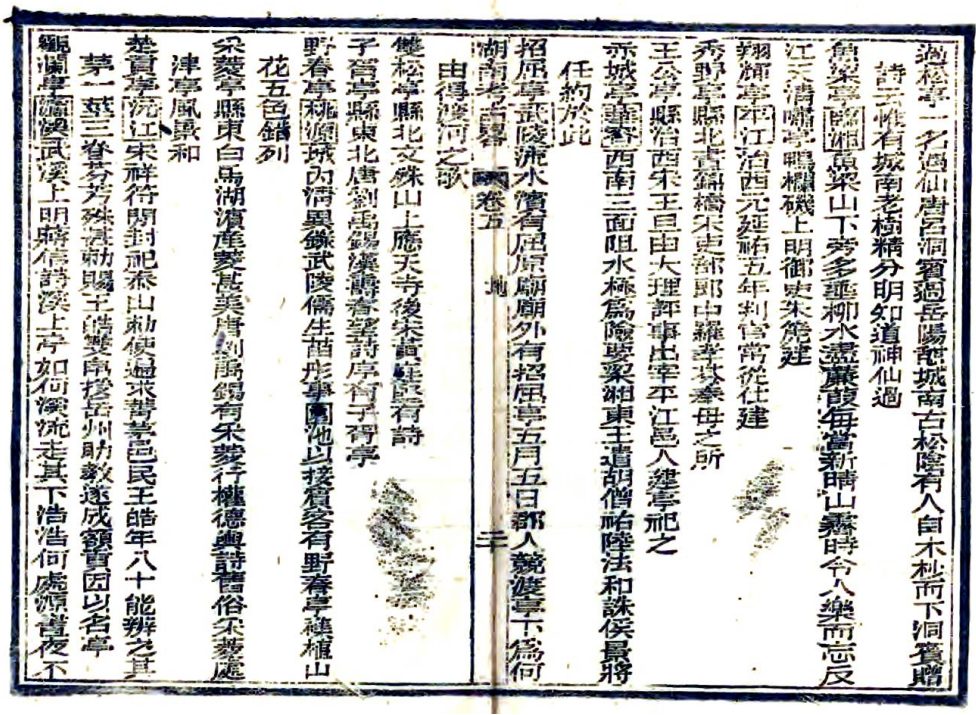 過松亭一名過仙唐呂洞賓過岳陽郡城南古松陰有人自木杪而下洞賓贈
詩云惟有城南老樹精分明知道神仙過
魚梁亭臨湘魚梁山下旁多垂柳水盡蒹葭每當新晴山霽時令人樂而忘反
江天清嘯亭鴨欄磯上明御史朱熊建
翔輝亭平江治西元延祐五年判官常從仕建
秀野亭縣北書錦橋宋吏部郎中羅孝芬奉母之所
王公亭縣治西宋王旦由大理評事出宰平江邑人建亭祀之
赤城亭華容西南三面阻水極為險要梁湘東王遣胡僧祐陸法和誅侯景將
任約於此
招屈亭武陵沅水濱有屈原廟廟外有招屈亭五月五日郡人競渡亭下為何
湖南考古略 卷五 地 二十
由得渡河之歌
雙松亭縣北文殊山上應天寺後宋黃庭堅有詩
子胥亭縣東北唐劉禹錫漢壽春望詩序有子胥亭
野春亭桃源城內清異錄武陵儒生苗彤事園池以接賓客有野春亭雜植山
花五色錯列
采菱亭縣東白馬湖濱產菱甚美唐劉禹錫有采菱行權德輿詩舊俗采菱處
津亭風景和
楚貢亭沅江宋祥符間封祀泰山勅使過求菁茅邑民王皓年八十能辨之其
茅一莖三脊芬芳殊甚勅賜王皓雙帛授岳州助教遂成額貢因以名亭
觀瀾亭瀘溪武溪上明蔣信詩溪上亭如何溪流走其下浩浩何處源晝夜不